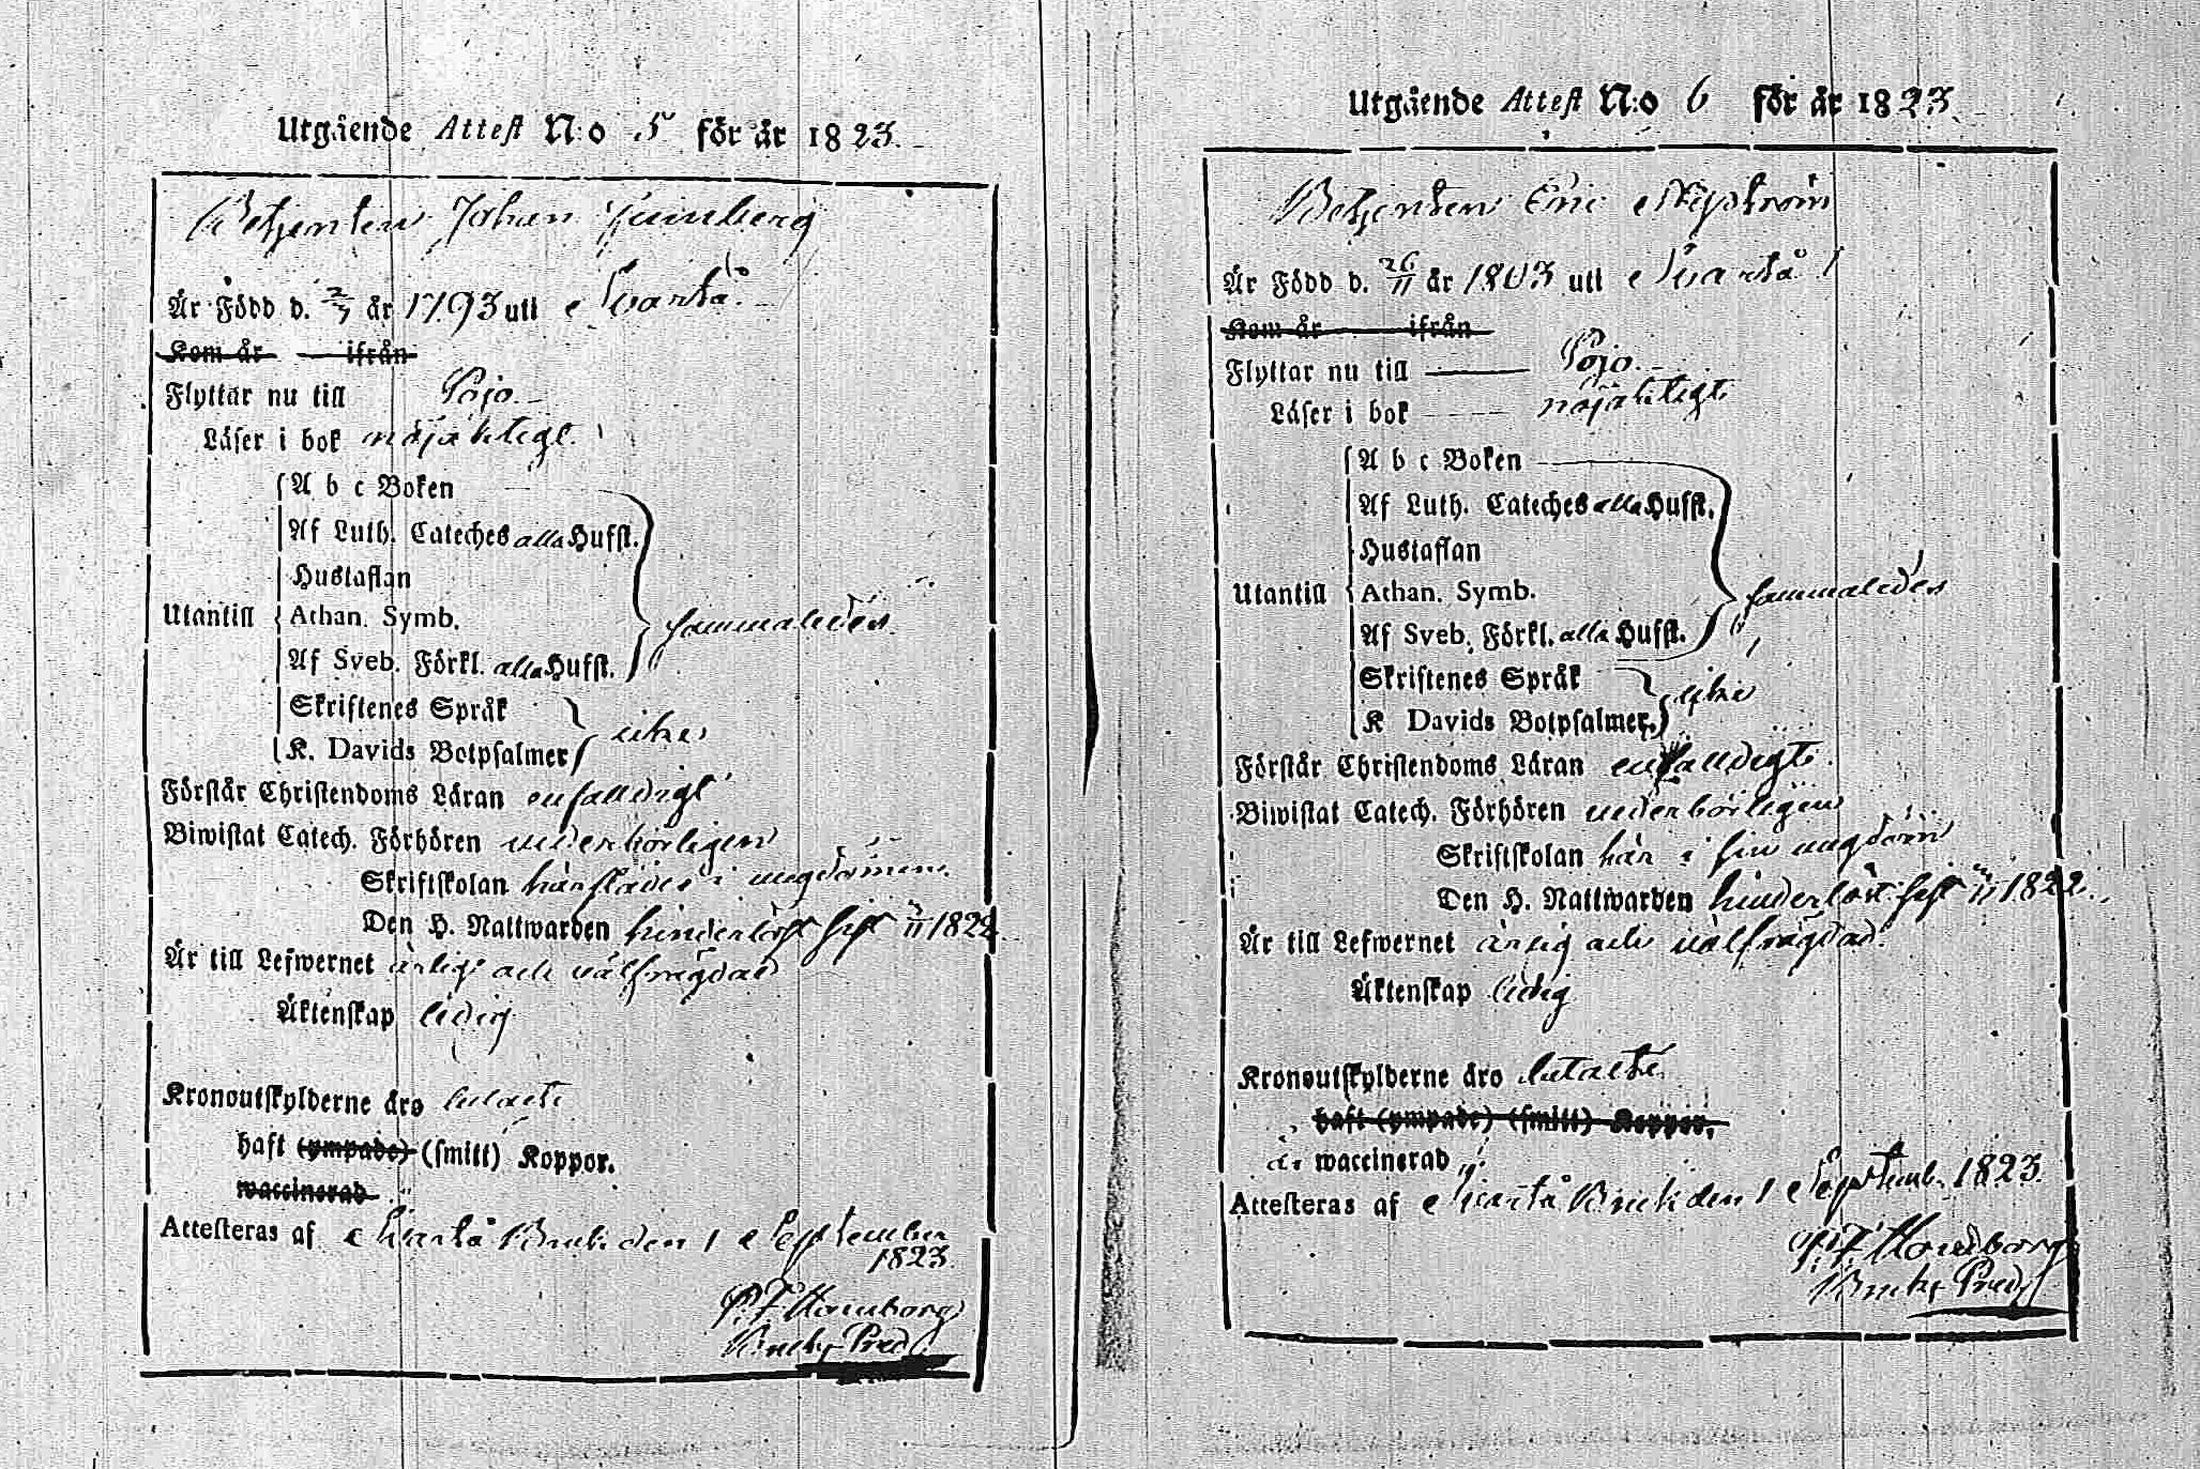 Utgående Attest N:o 5 för år 1823.
Betjenten Johan
Är Född d. 2/7 år 1793 uti Svartå.
Kom år ifrån
Flyttar nu till Pojo
Läser i bok nöjaktigt.
A b c Boken
Af Luth. Cateches alla Hufst.
Hustaflan
Utantill Athan. Symb. sammaledes
Af Sveb. Förkl. alla Hufst.
Skriftenes Språk
K. Davids Botpsalmer icke
Förstår Christendoms Läran enfalldigt
Biwistat Catech. Förhören vederbörligen
Skriftskolan härstädes i ungdomen.
Den H. Nattwarden hinderlöst sist 1822.
Är till Lefwernet ärlig och välfrägdad
Äktenskap ledig
Kronoutskylderne äro betalte
haft (ympade) (smitt) Koppor.
waccinerad
Attesteras af Svartå Bruk den 1 September
1823.
Bruks Pred.
Utgående Attest N:o 6 för år 1823.
Betjenten Eric Nyström
Är Född d. 26/11 år 1803 uti Svartå
Kom år ifrån
Flyttar nu till Pojo.
Läser i bok nöjaktigt
A b c Boken
Af Luth. Cateches alla Hufst.
Hustaflan
Utantill Athan. Symb. sammaledes
Af Sveb. Förkl. alla Hufst.
Skriftenes Språk icke
K Davids Botpsalmer.
Förstår Christendoms Läran enfalldigt.
Biwistat Catech. Förhören vederbörligen
Skriftskolan här i sin ungdom
Den H. Nattwarden hinderlöst sist 1822.
Är till Lefwernet ärlig och välfrägdad.
Äktenskap ledig
Kronoutskylderne äro betalte
haft (ympade) (smitt) Koppor.
är waccinerad
Attesteras af Svartå Bruk den 1 Septemb. 1823.
Bruks Pred.